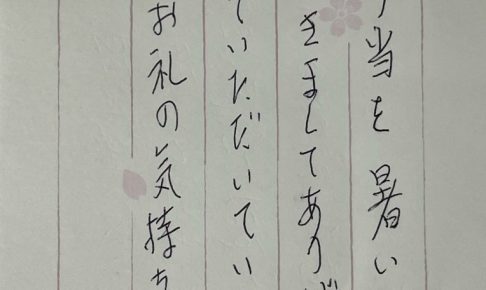 当を暑い
きましてありが
ていただいてい
お礼の気持ち